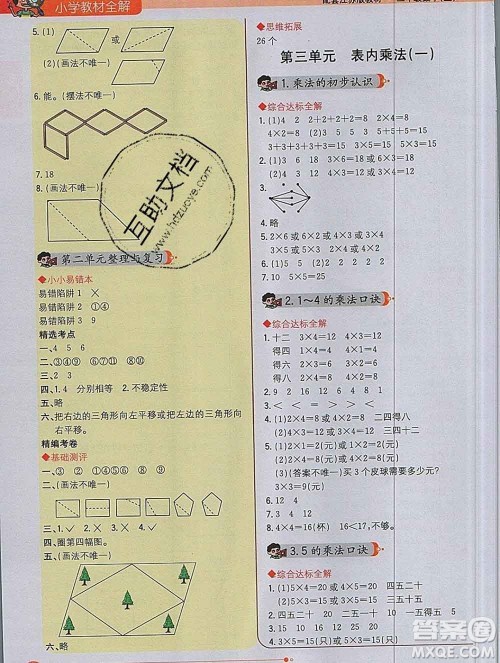 小学教材全解
5. (1) 或
(2)(画法不唯一)
6. 能。(摆法不唯一)
7. 18
8. (画法不唯一)
第二单元整理与复习
小小易错本
易错陷阱 1 ×
易错陷阱 2 ①④
易错陷阱 3 9
精选考点
一、4 5 6
二、③④⑨ ⑥⑦ ⑤⑩
三、2 3
四、1. 4 分别相等 2. 不稳定性
五、略
六、把右边的三角形向左平移或把左边的三角形向
右平移。
精编考卷
基础测评
一、③ ② ① ① ④
二、(画法不唯一)
三、1. ✓ 2. × 3. × 4. ✓
四、圈第四幅图。
五、(画法不唯一)
六、略
思维拓展
26 个
第三单元 表内乘法(一)
1. 乘法的初步认识
综合达标全解
1. (1)4 2 2+2+2+2=8 2×4=8
4×2=8 (2)3 5
3+3+3+3+3=15 3×5=15 5×3=15
2. (1)3 6 18 3×6=18或6×3=18
(2)5 3 15 3×5=15或5×3=15
3.
4. 略
5. 2×6或6×2 4×2或2×4 3×4或
4×3 4×5或5×4
6. (1)5 5 (2)2 2 2 2 2
7. 10 5×5=25
2. 1~4的乘法口诀
综合达标全解
1. 十二 3×4=12 4×3=12
得四 1×4=4 4×1=4
得六 2×3=6 3×2=6
得八 2×4=8 4×2=8
2. 9 12 16 4 12 8 6 2
3. < = > < = =
4. (1)2×4=8或4×2=8 二四得八
(2)3×4=12或4×3=12 三四十二
5. (1)4×3=12(元) (2)2×4=8(元)
(3)(答案不唯一)买3个皮球需要多少元?
3×3=9(元)
6. 12 4
8. 4×4=16(杯) 16<17,不够。
3. 5的乘法口诀
综合达标全解
1. 5×4=20 4×5=20 四五二十
5×3=15 3×5=15 三五十五
2. 四五二十 20 二五一十 10 一五得五 5
3. 15 12 16 25 9 20
4. 3×5=15(只)或5×3=15(只)
互助文档
www.hdzuoye.com
答案圈
MXQE.COM